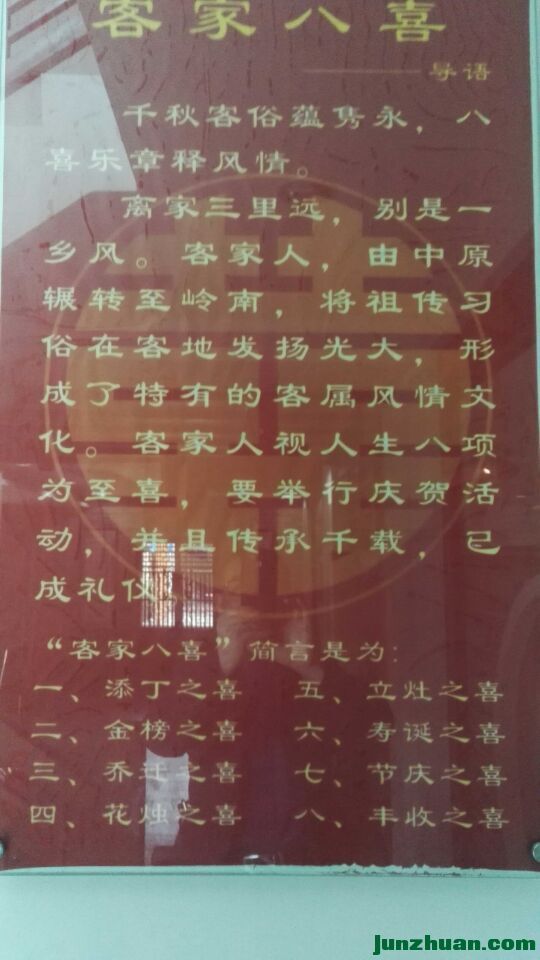 客家八喜
———导语
千秋客俗蕴隽永，八
喜乐章释风情。
离家三里远，别是一
乡风。客家人，由中原
辗转至岭南，将祖传习
俗在客地发扬光大，形
成了特有的客属风情文
化。客家人视人生八项
为至喜，要举行庆贺活
动，并且传承千载，已
成礼仪。
“客家八喜”简言是为：
一、添丁之喜 五、立灶之喜
二、金榜之喜 六、寿诞之喜
三、乔迁之喜 七、节庆之喜
四、花烛之喜 八、丰收之喜
junzhuan.com